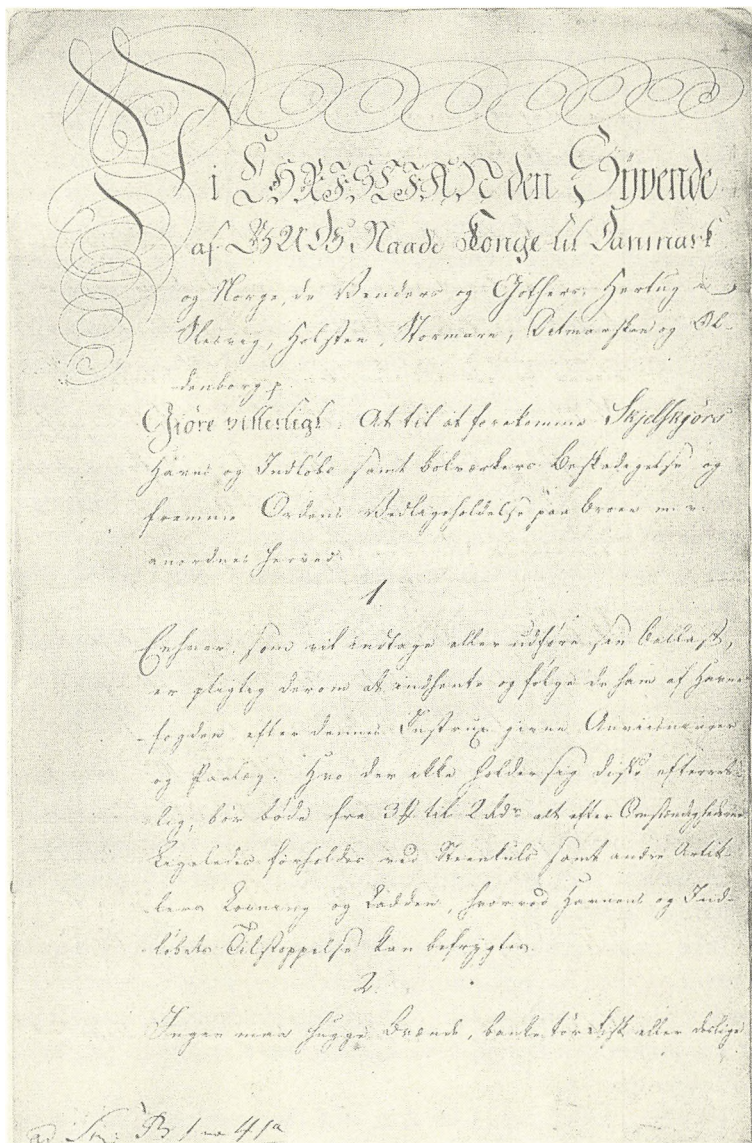 Vi CHRISTIAN den Syvende
af GUDS Naade Konge til Danmark
og Norge, de Venders og Gothers, Hertug i
Slesvig, Holsten, Stormarn, Ditmarsken og Ol-
denborg p.
Giøre vitterligt: At til at forekomme Skjelskjørs
Havns og Indløbs samt bolværkers Beskadigelse og
fremme Ordens Vedligeholdelse paa broen m. v.
anordnes herved
1.
Enhver, som vil indtage eller udføre sin Ballast,
er pligtig derom at indhente og følge de ham af Havne-
fogden efter dennes Instrux givne Anviisninger
og Paalæg. Hvo der ikke holder sig disse efterret-
lig, bør bøde fra 3 ß til 2 Rdr alt efter Omstændighederne
Ligeledes forholdes ved Steenkuls samt andre Artik-
lers Losning og Ladden, hvorved Havnens og Ind-
løbets Tilstoppelse kan befrygtes.
2.
Ingen maa hugge Brænde, banke tør Fisk eller deslige